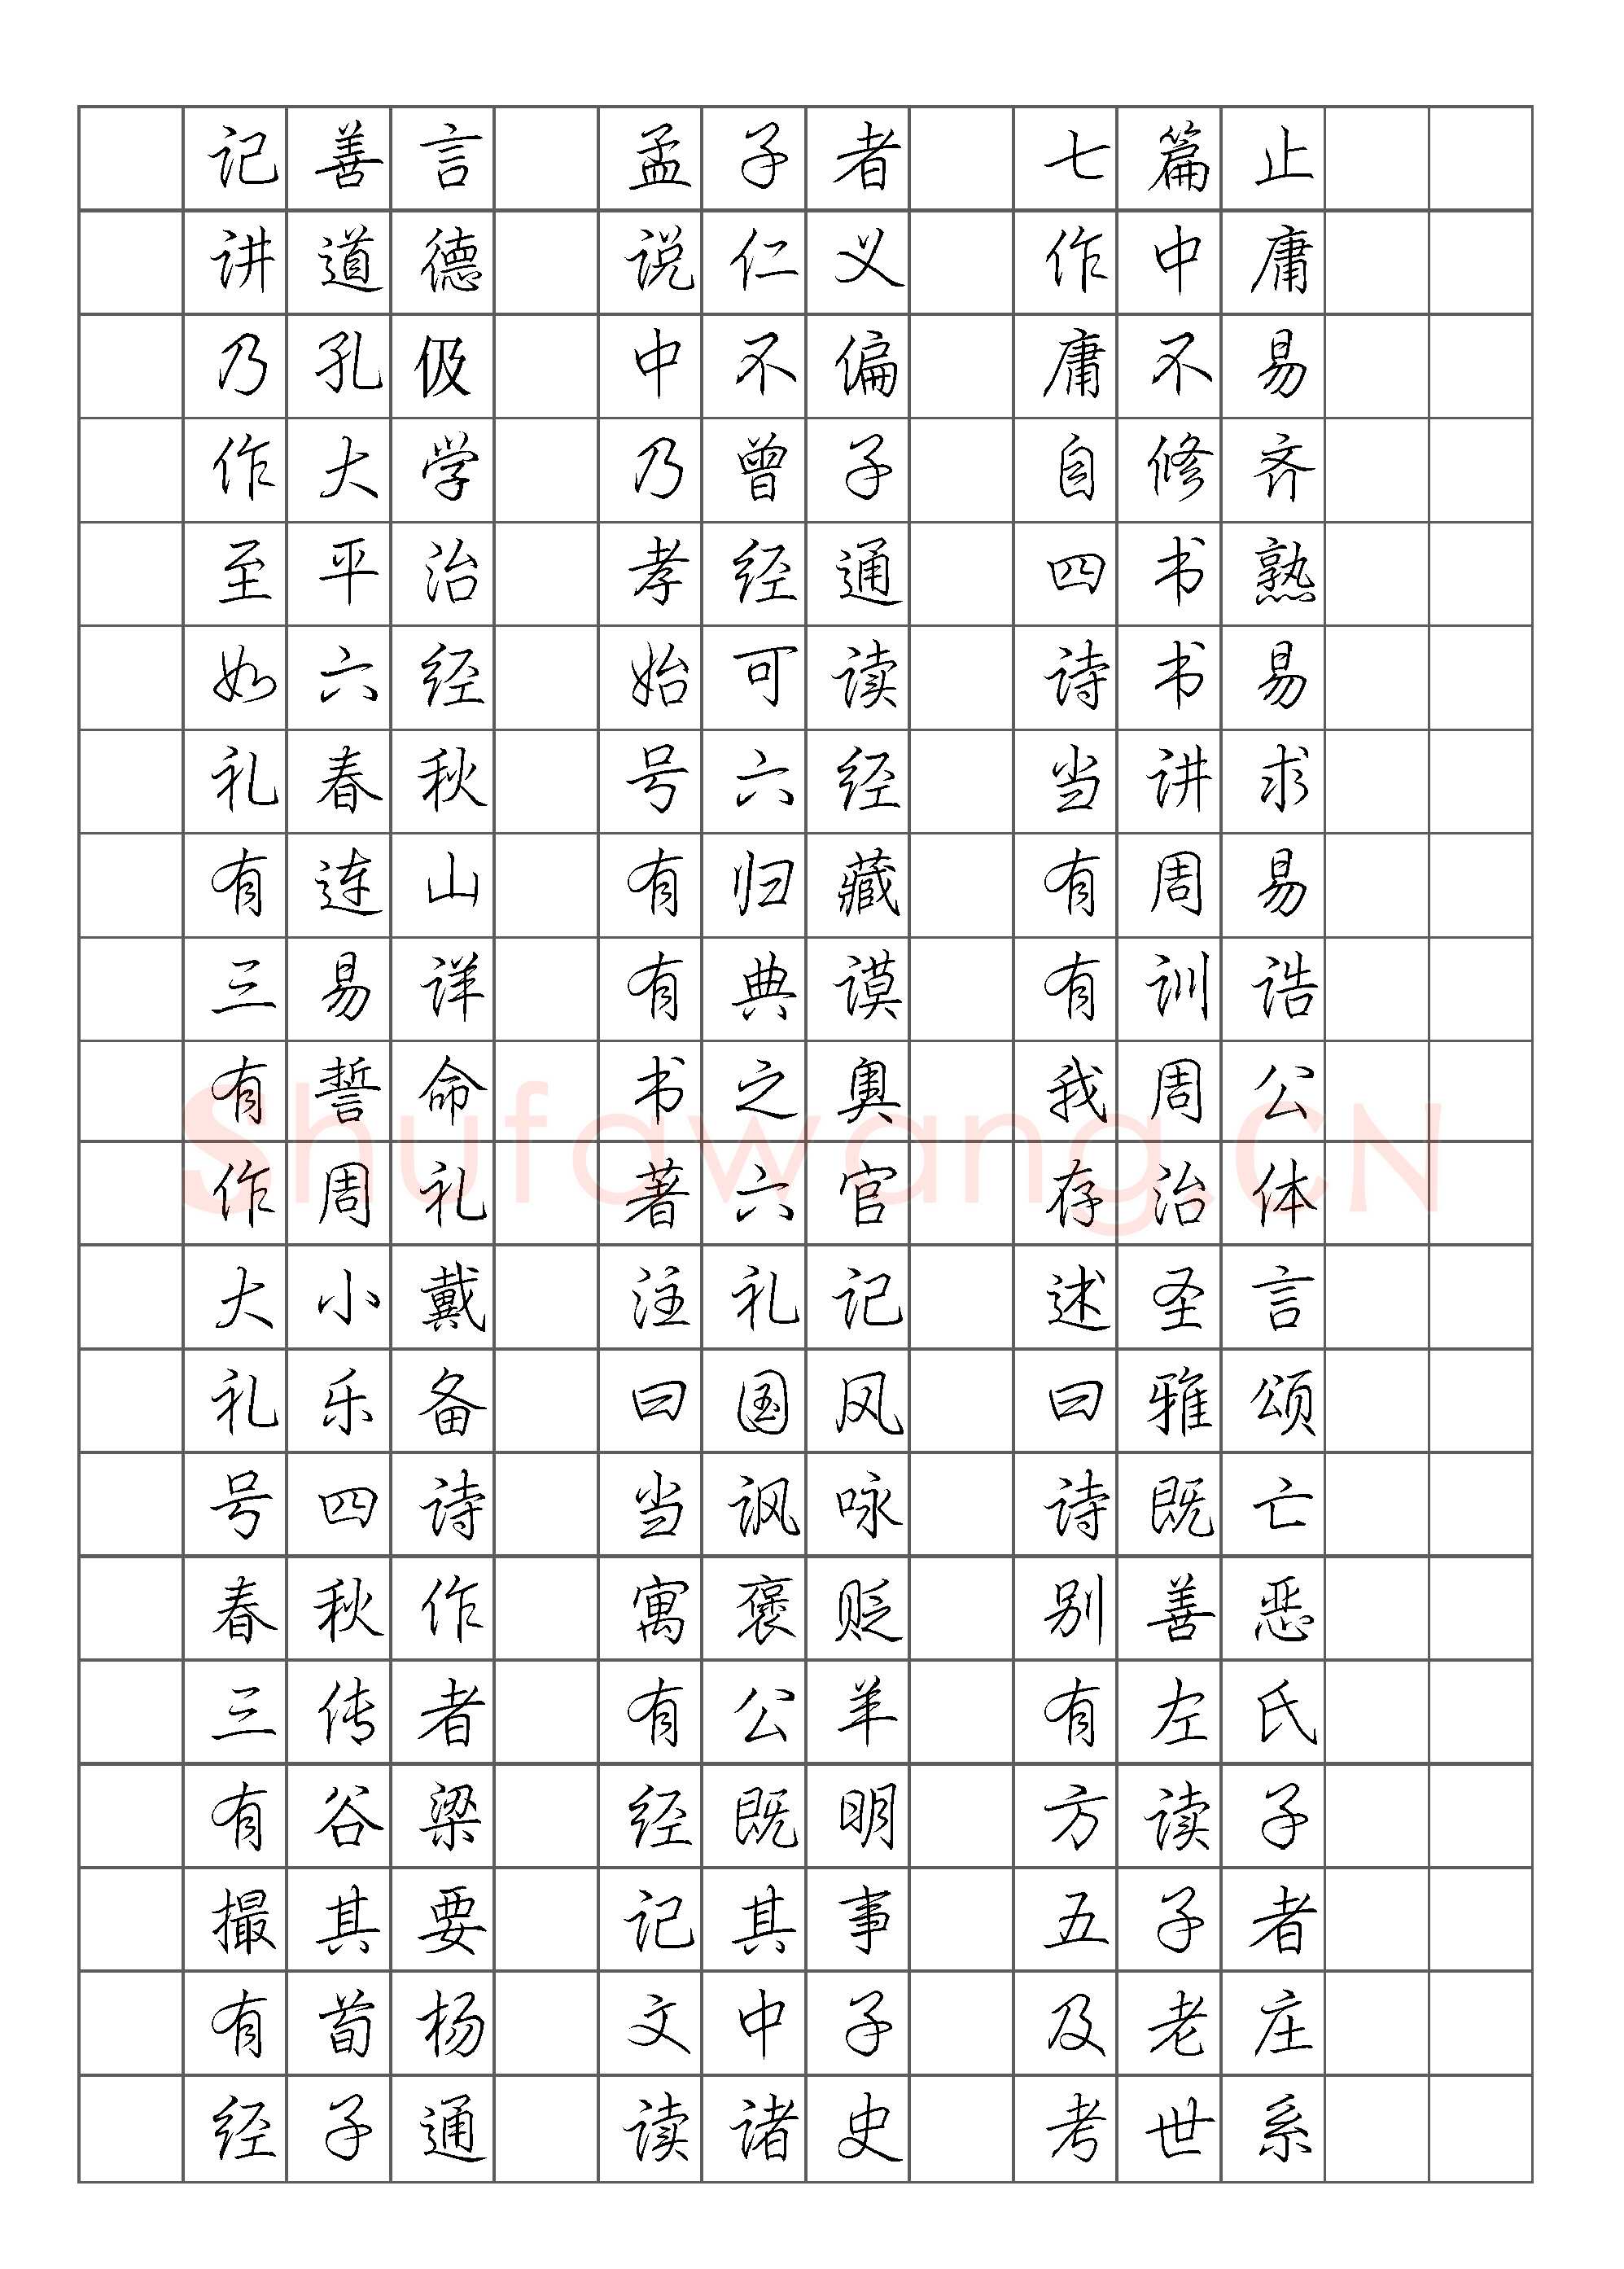 记善言 孟子者 七篇止
讲道德 说仁义 作中庸
乃孔伋 中不偏 庸不易
作大学 乃曾子 自修齐
至平治 孝经通 四书熟
如六经 始可读 诗书易
礼春秋 号六经 当讲求
有连山 有归藏 有周易
三易详 有典谟 有训诰
有誓命 书之奥 我周公
作周礼 著六官 存治体
大小戴 注礼记 述圣言
礼乐备 曰国风 曰雅颂
号四诗 当讽咏 诗既亡
春秋作 寓褒贬 别善恶
三传者 有公羊 有左氏
有谷梁 经既明 方读子
撮其要 记其事 五子者
有荀杨 文中子 及老庄
经子通 读诸史 考世系
Shufawang.CN